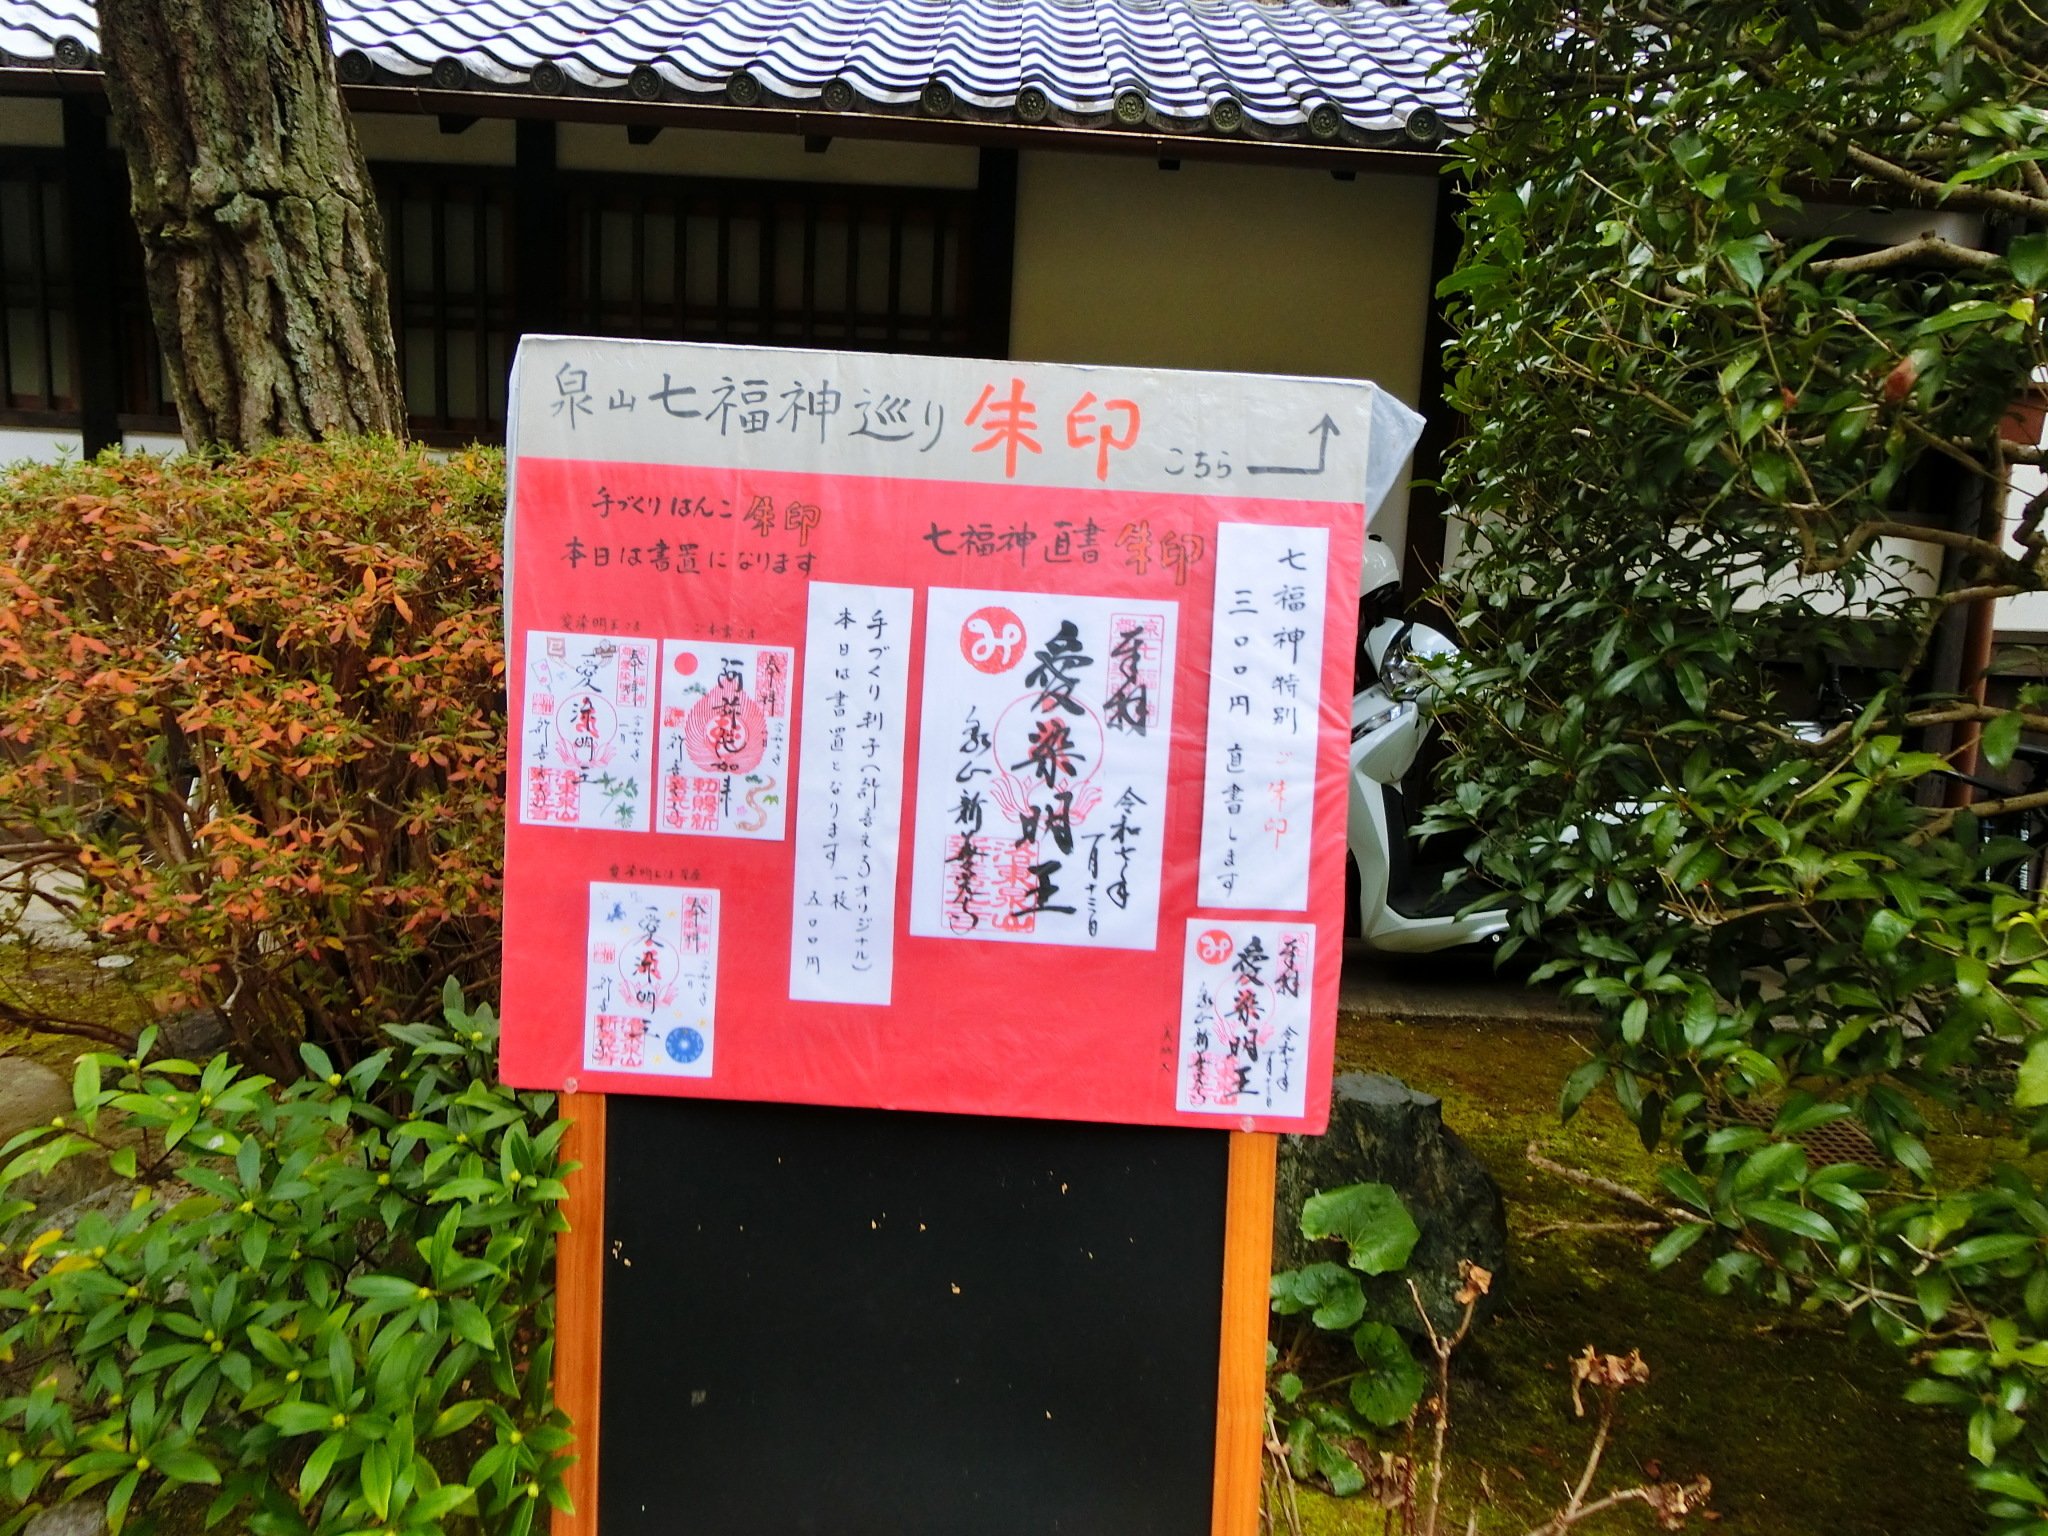 泉山七福神巡り 朱印 こちら
手づくりはんこ 朱印
本日は書置になります
愛染明王さま
奉拝
愛染明王
奉拝
阿弥陀如来
勅賜新
善光寺
手づくり判子(新善光寺オリジナル)
本日は書置となります 一枚 五〇〇円
奉拝
愛染明王
七福神直書 朱印
奉拝
令和七年
一月十三日
愛染明王
泉山新善光寺
洛東泉山
新善光寺
七福神特別 ご朱印
三〇〇円 直書します
奉拝
令和七年
一月十三日
愛染明王
泉山新善光寺